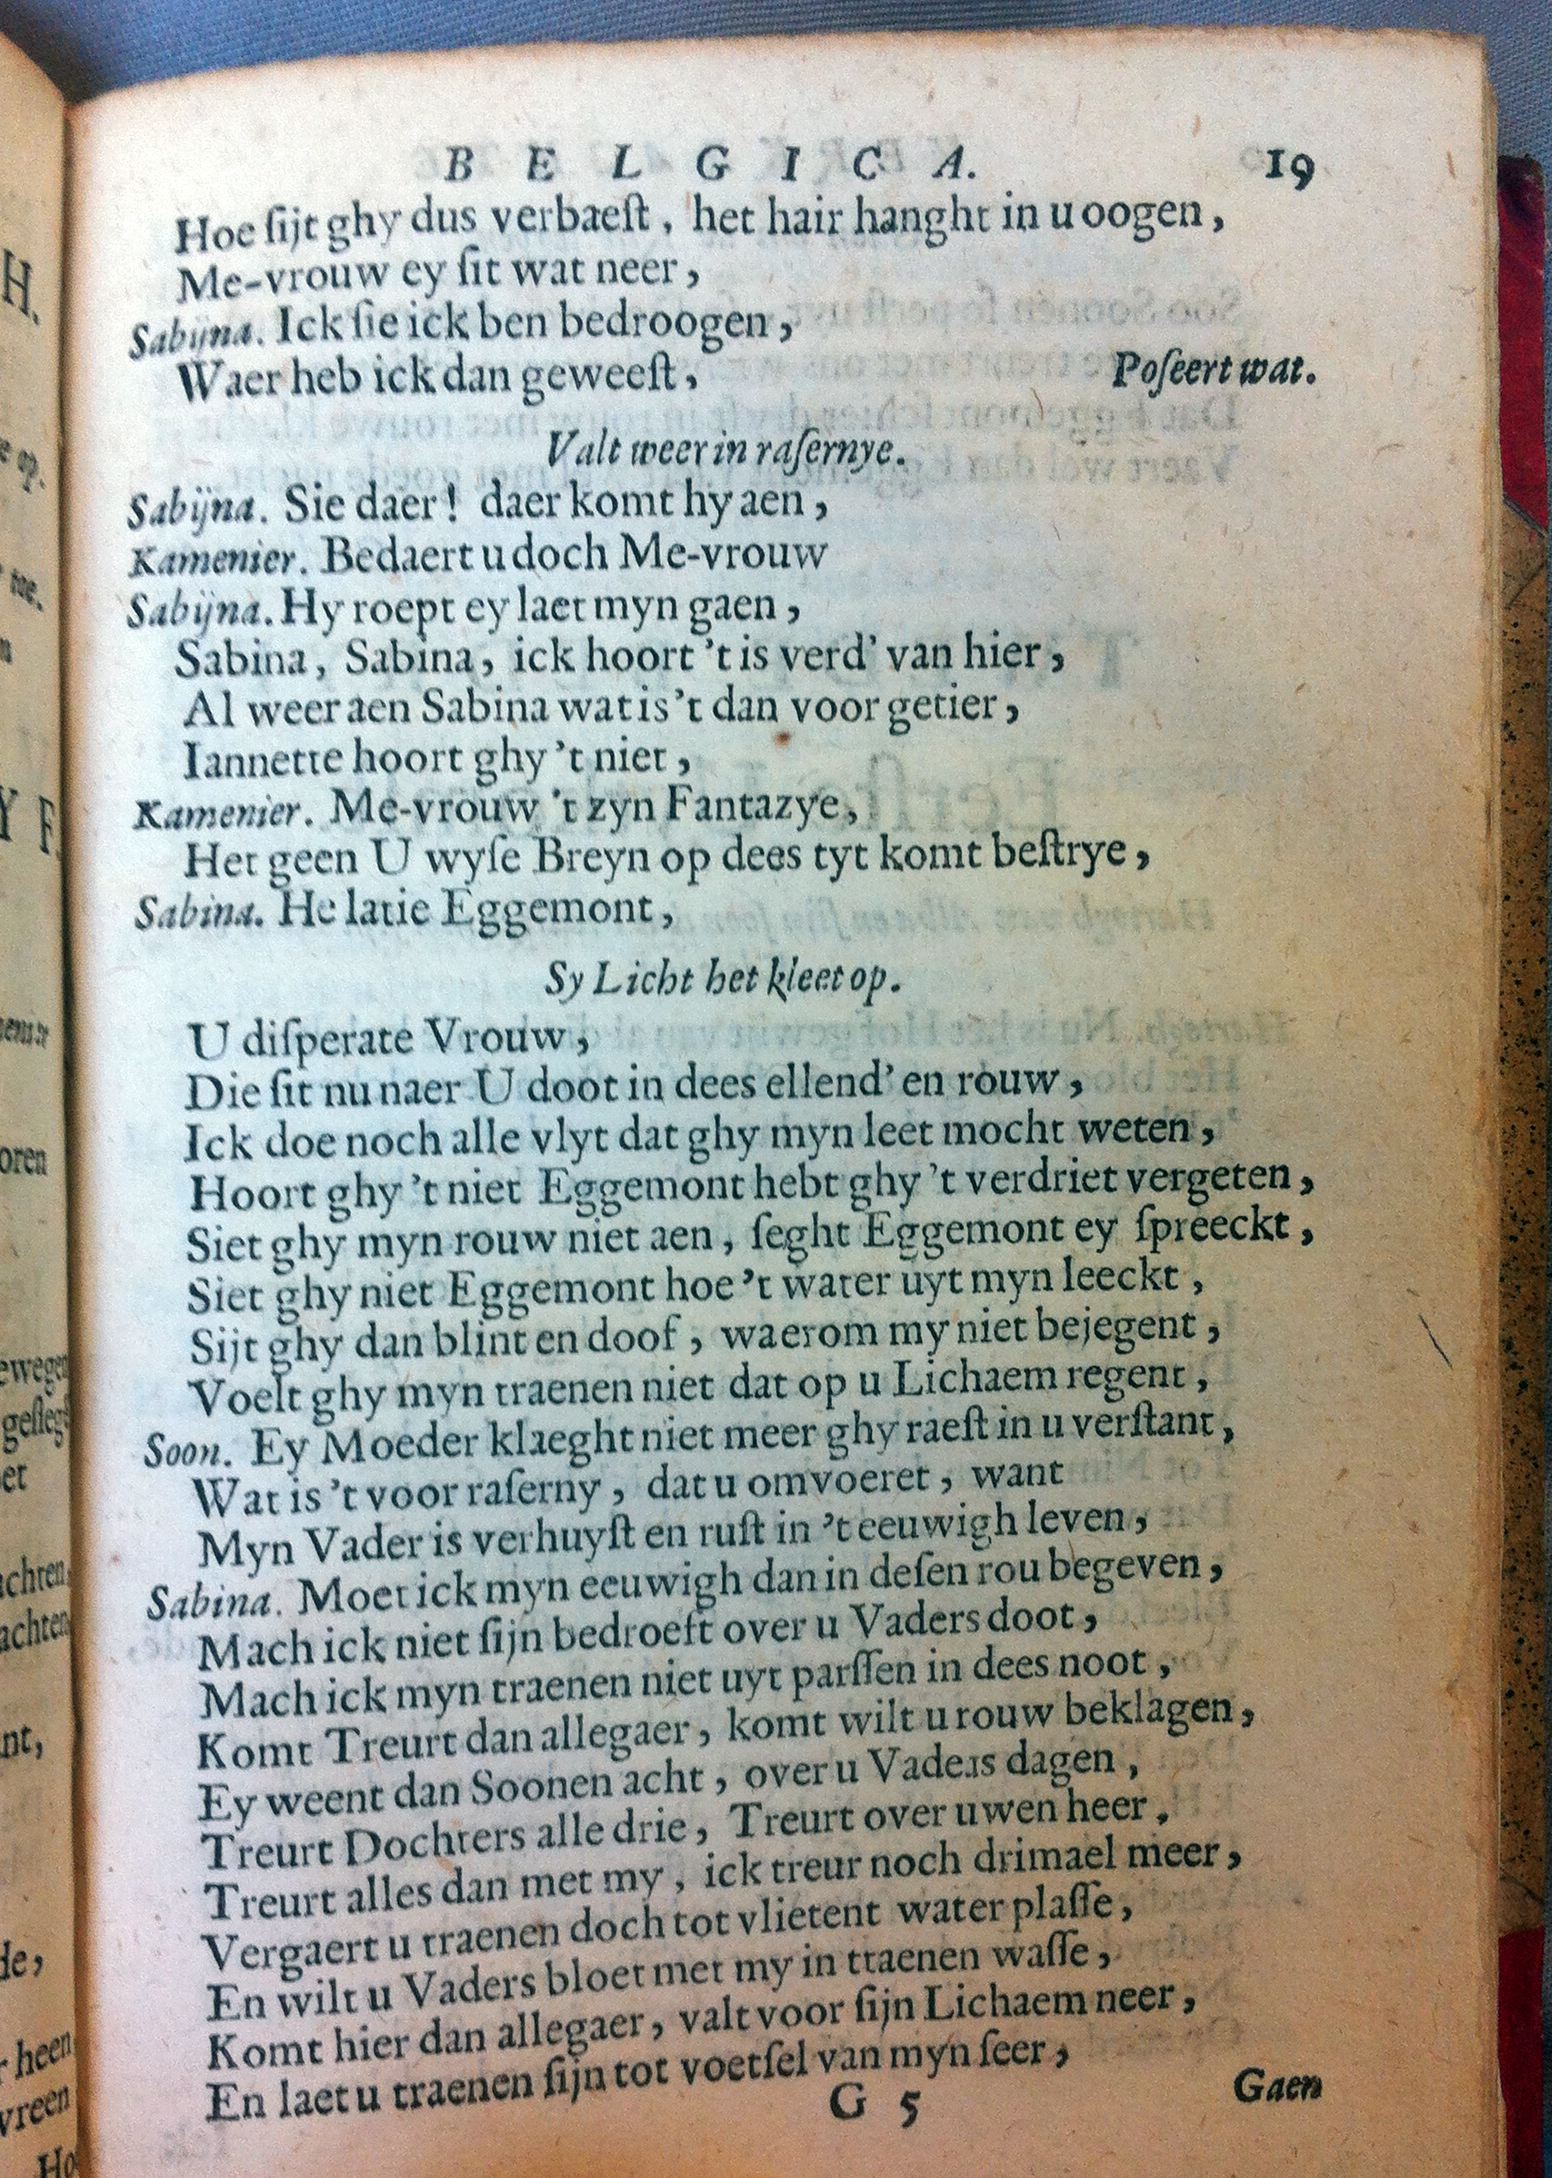 B E L G I C A. 19
Hoe ſijt ghy dus verbaeſt, het hair hanght in u oogen,
Me-vrouw ey ſit wat neer,
Sabijna. Ick ſie ick ben bedroogen,
Waer heb ick dan geweeſt, Poſeert wat.
Valt weer in raſernye.
Sabijna. Sie daer! daer komt hy aen,
Kamenier. Bedaert u doch Me-vrouw
Sabijna. Hy roept ey laet myn gaen,
Sabina, Sabina, ick hoort 't is verd' van hier,
Al weer aen Sabina wat is 't dan voor getier,
Iannette hoort ghy 't niet,
Kamenier. Me-vrouw 't zyn Fantazye,
Het geen U wyſe Breyn op dees tyt komt beſtrye,
Sabina. He latie Eggemont,
Sy Licht het kleet op.
U diſperate Vrouw,
Die ſit nu naer U doot in dees ellend' en rouw,
Ick doe noch alle vlyt dat ghy myn leet mocht weten,
Hoort ghy 't niet Eggemont hebt ghy 't verdriet vergeten,
Siet ghy myn rouw niet aen, ſeght Eggemont ey ſpreeckt,
Siet ghy niet Eggemont hoe 't water uyt myn leeckt,
Sijt ghy dan blint en doof, waerom my niet bejegent,
Voelt ghy myn traenen niet dat op u Lichaem regent,
Soon. Ey Moeder klaeght niet meer ghy raeſt in u verſtant,
Wat is 't voor raſerny, dat u omvoeret, want
Myn Vader is verhuyſt en ruſt in 't eeuwigh leven,
Sabina. Moet ick myn eeuwigh dan in deſen rou begeven,
Mach ick niet ſijn bedroeft over u Vaders doot,
Mach ick myn traenen niet uyt parſſen in dees noot,
Komt Treurt dan allegaer, komt wilt u rouw beklagen,
Ey weent dan Soonen acht, over u Vaders dagen,
Treurt Dochters alle drie, Treurt over uwen heer,
Treurt alles dan met my, ick treur noch drimael meer,
Vergaert u traenen doch tot vlietent water plaſſe,
En wilt u Vaders bloet met my in ttaenen waſſe,
Komt hier dan allegaer, valt voor ſijn Lichaem neer,
En laet u traenen ſijn tot voetſel van myn ſeer,
G 5 Gaen